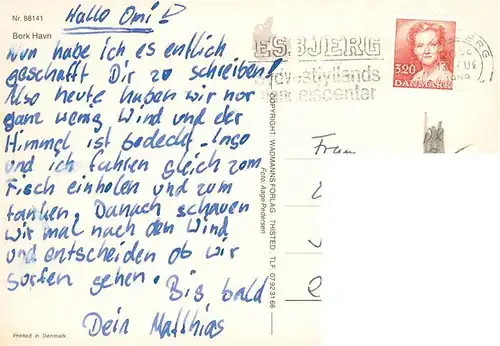 Nr. 88141
Bork Havn
Hallo Omi!
Nun habe ich es entlich
geschafft Dir zo schreiben!
Also heute haben wir nor
ganz wenig Wind und der
Himmel ist bedeckt. Ingo
und ich fahren gleich zom
Fisch einholen und zom
tanken. Danach schauen
wir mal nach den Wind
und entscheiden ob wir
sorfen gehen.
Bis bald
Dein Matthias
Printed in Denmark
COPYRIGHT WADMANNSFORLAG THISTED TLF. 07923166
Foto: Aage Pedersen
ESBJERG
3.20
DANMARK
Frau